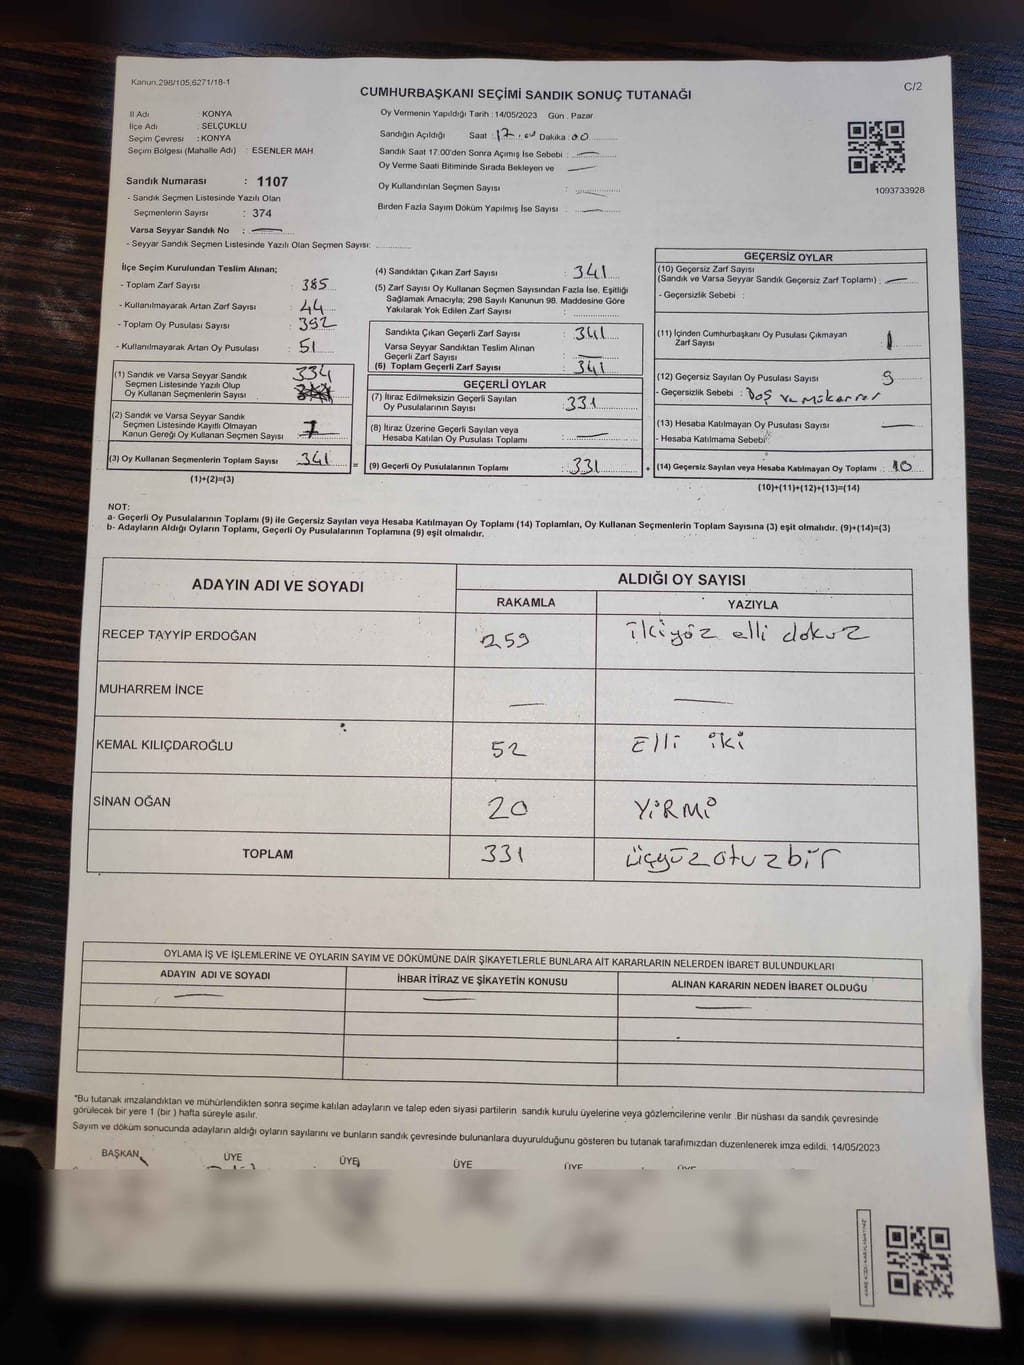 Kanun.298/105,6271/18-1
C/2
CUMHURBAŞKANI SEÇİMİ SANDIK SONUÇ TUTANAĞI
İl Adı : KONYA
İlçe Adı : SELÇUKLU
Seçim Çevresi : KONYA
Seçim Bölgesi (Mahalle Adı) : ESENLER MAH.
Sandık Numarası : 1107
- Sandık Seçmen Listesinde Yazılı Olan
Seçmenlerin Sayısı : 374
Varsa Seyyar Sandık No : —
- Seyyar Sandık Seçmen Listesinde Yazılı Olan Seçmen Sayısı:
Oy Vermenin Yapıldığı Tarih : 14/05/2023 Gün . Pazar
Sandığın Açıldığı Saat : 17.00 Dakika : 00
Sandık Saat 17.00'den Sonra Açımış İse Sebebi : —
Oy Verme Saati Bitiminde Sırada Bekleyen ve —
Oy Kullandırılan Seçmen Sayısı : —
Birden Fazla Sayım Döküm Yapılmış İse Sayısı : —
1093733928
İlçe Seçim Kurulundan Teslim Alınan;
- Toplam Zarf Sayısı : 385
- Kullanılmayarak Artan Zarf Sayısı : 44
- Toplam Oy Pusulası Sayısı : 392
- Kullanılmayarak Artan Oy Pusulası : 51
(1) Sandık ve Varsa Seyyar Sandık
Seçmen Listesinde Yazılı Olup
Oy Kullanan Seçmenlerin Sayısı : 334
(2) Sandık ve Varsa Seyyar Sandık
Seçmen Listesinde Kayıtlı Olmayan
Kanun Gereği Oy Kullanan Seçmen Sayısı : 7
(3) Oy Kullanan Seçmenlerin Toplam Sayısı : 341
(1)+(2)=(3)
(4) Sandıktan Çıkan Zarf Sayısı : 341
(5) Zarf Sayısı Oy Kullanan Seçmen Sayısından Fazla İse, Eşitliği
Sağlamak Amacıyla; 298 Sayılı Kanunun 98. Maddesine Göre
Yakılarak Yok Edilen Zarf Sayısı :
Sandıkta Çıkan Geçerli Zarf Sayısı : 341
Varsa Seyyar Sandıktan Teslim Alınan
Geçerli Zarf Sayısı : —
(6) Toplam Geçerli Zarf Sayısı : 341
GEÇERLİ OYLAR
(7) İtiraz Edilmeksizin Geçerli Sayılan
Oy Pusulalarının Sayısı : 331
(8) İtiraz Üzerine Geçerli Sayılan veya
Hesaba Katılan Oy Pusulası Toplamı : —
= (9) Geçerli Oy Pusulalarının Toplamı : 331
GEÇERSİZ OYLAR
(10) Geçersiz Zarf Sayısı
(Sandık ve Varsa Seyyar Sandık Geçersiz Zarf Toplamı) : —
- Geçersizlik Sebebi :
(11) İçinden Cumhurbaşkanı Oy Pusulası Çıkmayan
Zarf Sayısı : 1
(12) Geçersiz Sayılan Oy Pusulası Sayısı : 9
- Geçersizlik Sebebi : Boş ve Mükerrer
(13) Hesaba Katılmayan Oy Pusulası Sayısı : —
- Hesaba Katılmama Sebebi:
+ (14) Geçersiz Sayılan veya Hesaba Katılmayan Oy Toplamı : 10
(10)+(11)+(12)+(13)=(14)
NOT:
a- Geçerli Oy Pusulalarının Toplamı (9) ile Geçersiz Sayılan veya Hesaba Katılmayan Oy Toplamı (14) Toplamları, Oy Kullanan Seçmenlerin Toplam Sayısına (3) eşit olmalıdır. (9)+(14)=(3)
b- Adayların Aldığı Oyların Toplamı, Geçerli Oy Pusulalarının Toplamına (9) eşit olmalıdır.
ADAYIN ADI VE SOYADI ALDIĞI OY SAYISI
RAKAMLA YAZIYLA
RECEP TAYYİP ERDOĞAN 259 ikiyüz elli dokuz
MUHARREM İNCE — —
KEMAL KILIÇDAROĞLU 52 Elli iki
SİNAN OĞAN 20 YİRMİ
TOPLAM 331 üçyüzotuzbir
OYLAMA İŞ VE İŞLEMLERİNE VE OYLARIN SAYIM VE DÖKÜMÜNE DAİR ŞİKAYETLERLE BUNLARA AİT KARARLARIN NELERDEN İBARET BULUNDUKLARI
ADAYIN ADI VE SOYADI İHBAR İTİRAZ VE ŞİKAYETİN KONUSU ALINAN KARARIN NEDEN İBARET OLDUĞU
— — —
"Bu tutanak imzalandıktan ve mühürlendikten sonra seçime katılan adayların ve talep eden siyasi partilerin sandık kurulu üyelerine veya gözlemcilerine verilir .Bir nüshası da sandık çevresinde
görülecek bir yere 1 (bir ) hafta süreyle asılır.
Sayım ve döküm sonucunda adayların aldığı oyların sayılarını ve bunların sandık çevresinde bulunanlara duyurulduğunu gösteren bu tutanak tarafımızdan düzenlenerek imza edildi. 14/05/2023
BAŞKAN ÜYE ÜYE ÜYE ÜYE